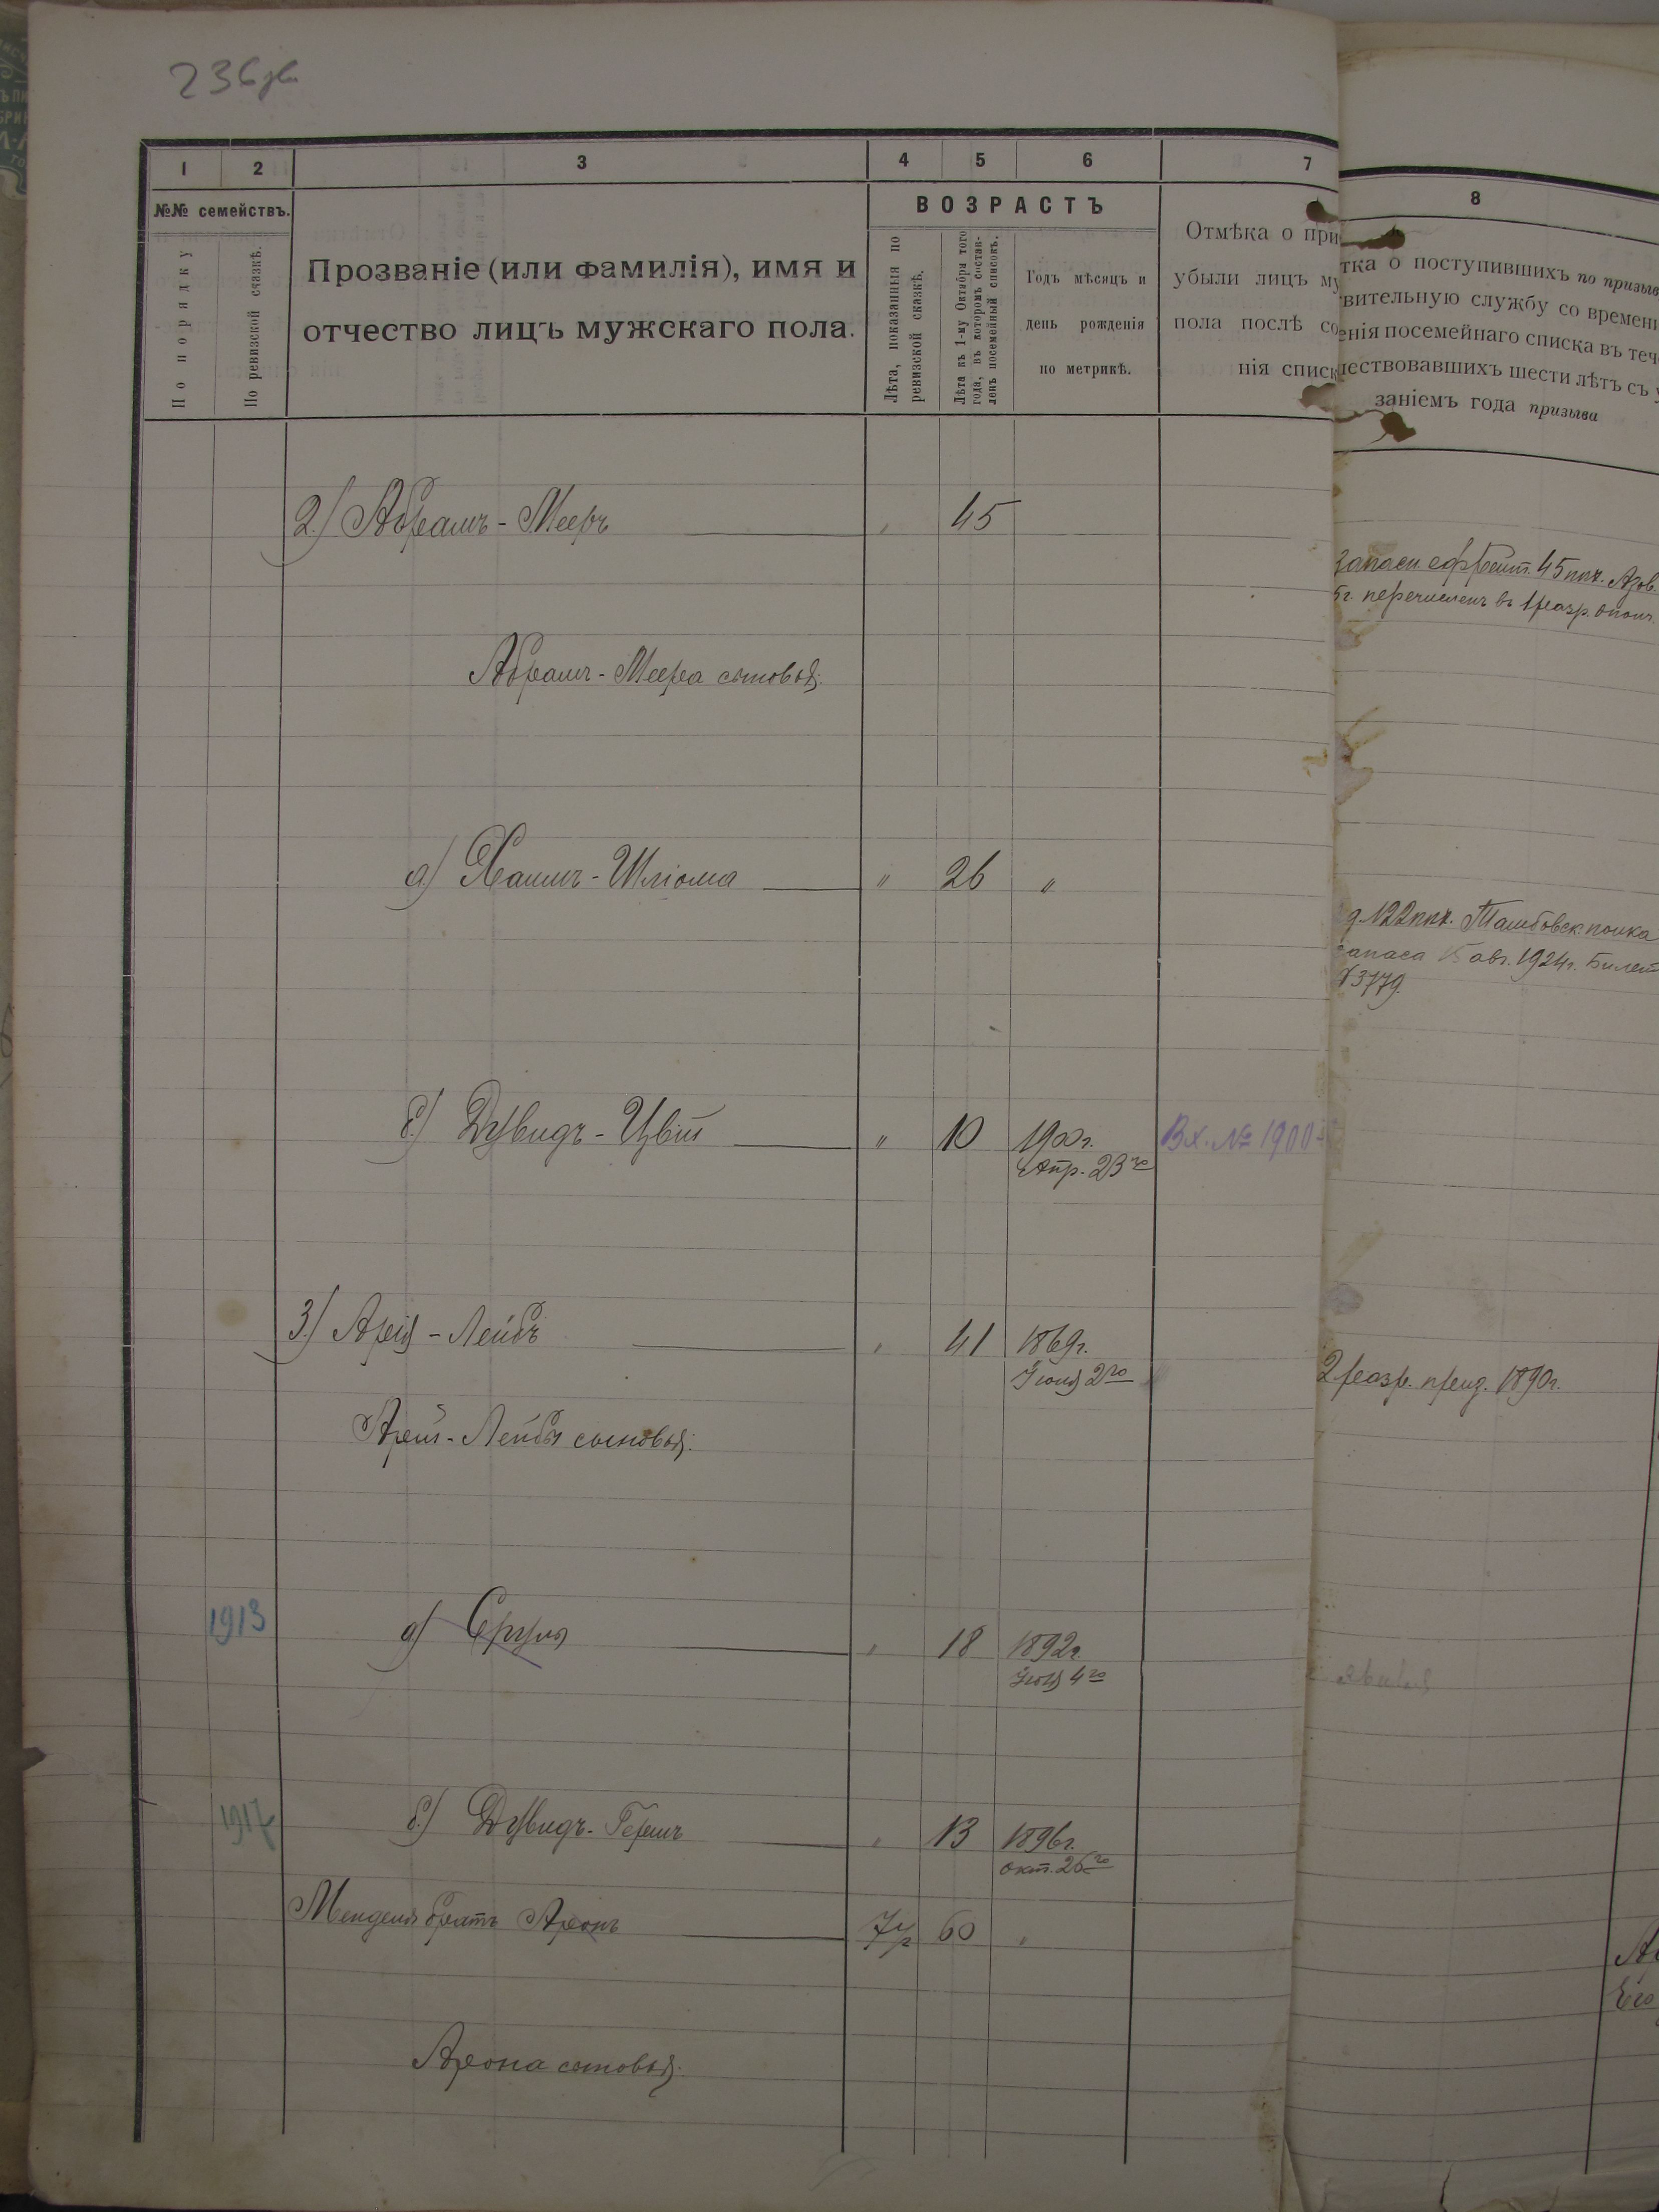 236
1 2 3 4 5 6 7 8
№№ семействъ.
По порядку
По ревизской сказкѣ.
Прозваніе (или фамилія), имя и
отчество лицъ мужскаго пола.
ВОЗРАСТЪ
Лѣта, показанныя по
ревизской сказкѣ.
Лѣта къ 1-му Октября того
года, въ которомъ состав-
ленъ посемейный списокъ.
Годъ мѣсяцъ и
день рожденія
по метрикѣ.
Отмѣка о при
убыли лицъ му
пола послѣ со
нія списк
тка о поступившихъ по призыв
вительную службу со времени
енія посемейнаго списка въ теч
ествовавшихъ шести лѣтъ съ у
заніемъ года призыва
2) Абрамъ-Мееръ " 45
запасн. ефрейт. 45 пѣх. Азов.
5г. перечисленъ въ 1 разр. ополч.
Абрамъ-Меера сыновья:
а) Хаимъ-Шліома " 26 "
д. 122 пѣх. Тамбовск. полка
запаса 15 авг. 1924г. Билет
№3779.
б.) Дувидъ-Цви " 10 1900г. Вх. № 1900
Апр. 23го
3) Арія-Лейбъ " 41 1869г.
Іюня 2го
2 разр. приз. 1890г.
Арій-Лейбы сыновья:
1913 а) Сруль " 18 1892г.
Іюля 4го
1917 б.) Дувидъ-Гершъ " 13 1896г.
окт. 26го
Менделя братъ Аронъ 7 60 "
Арона сыновья: